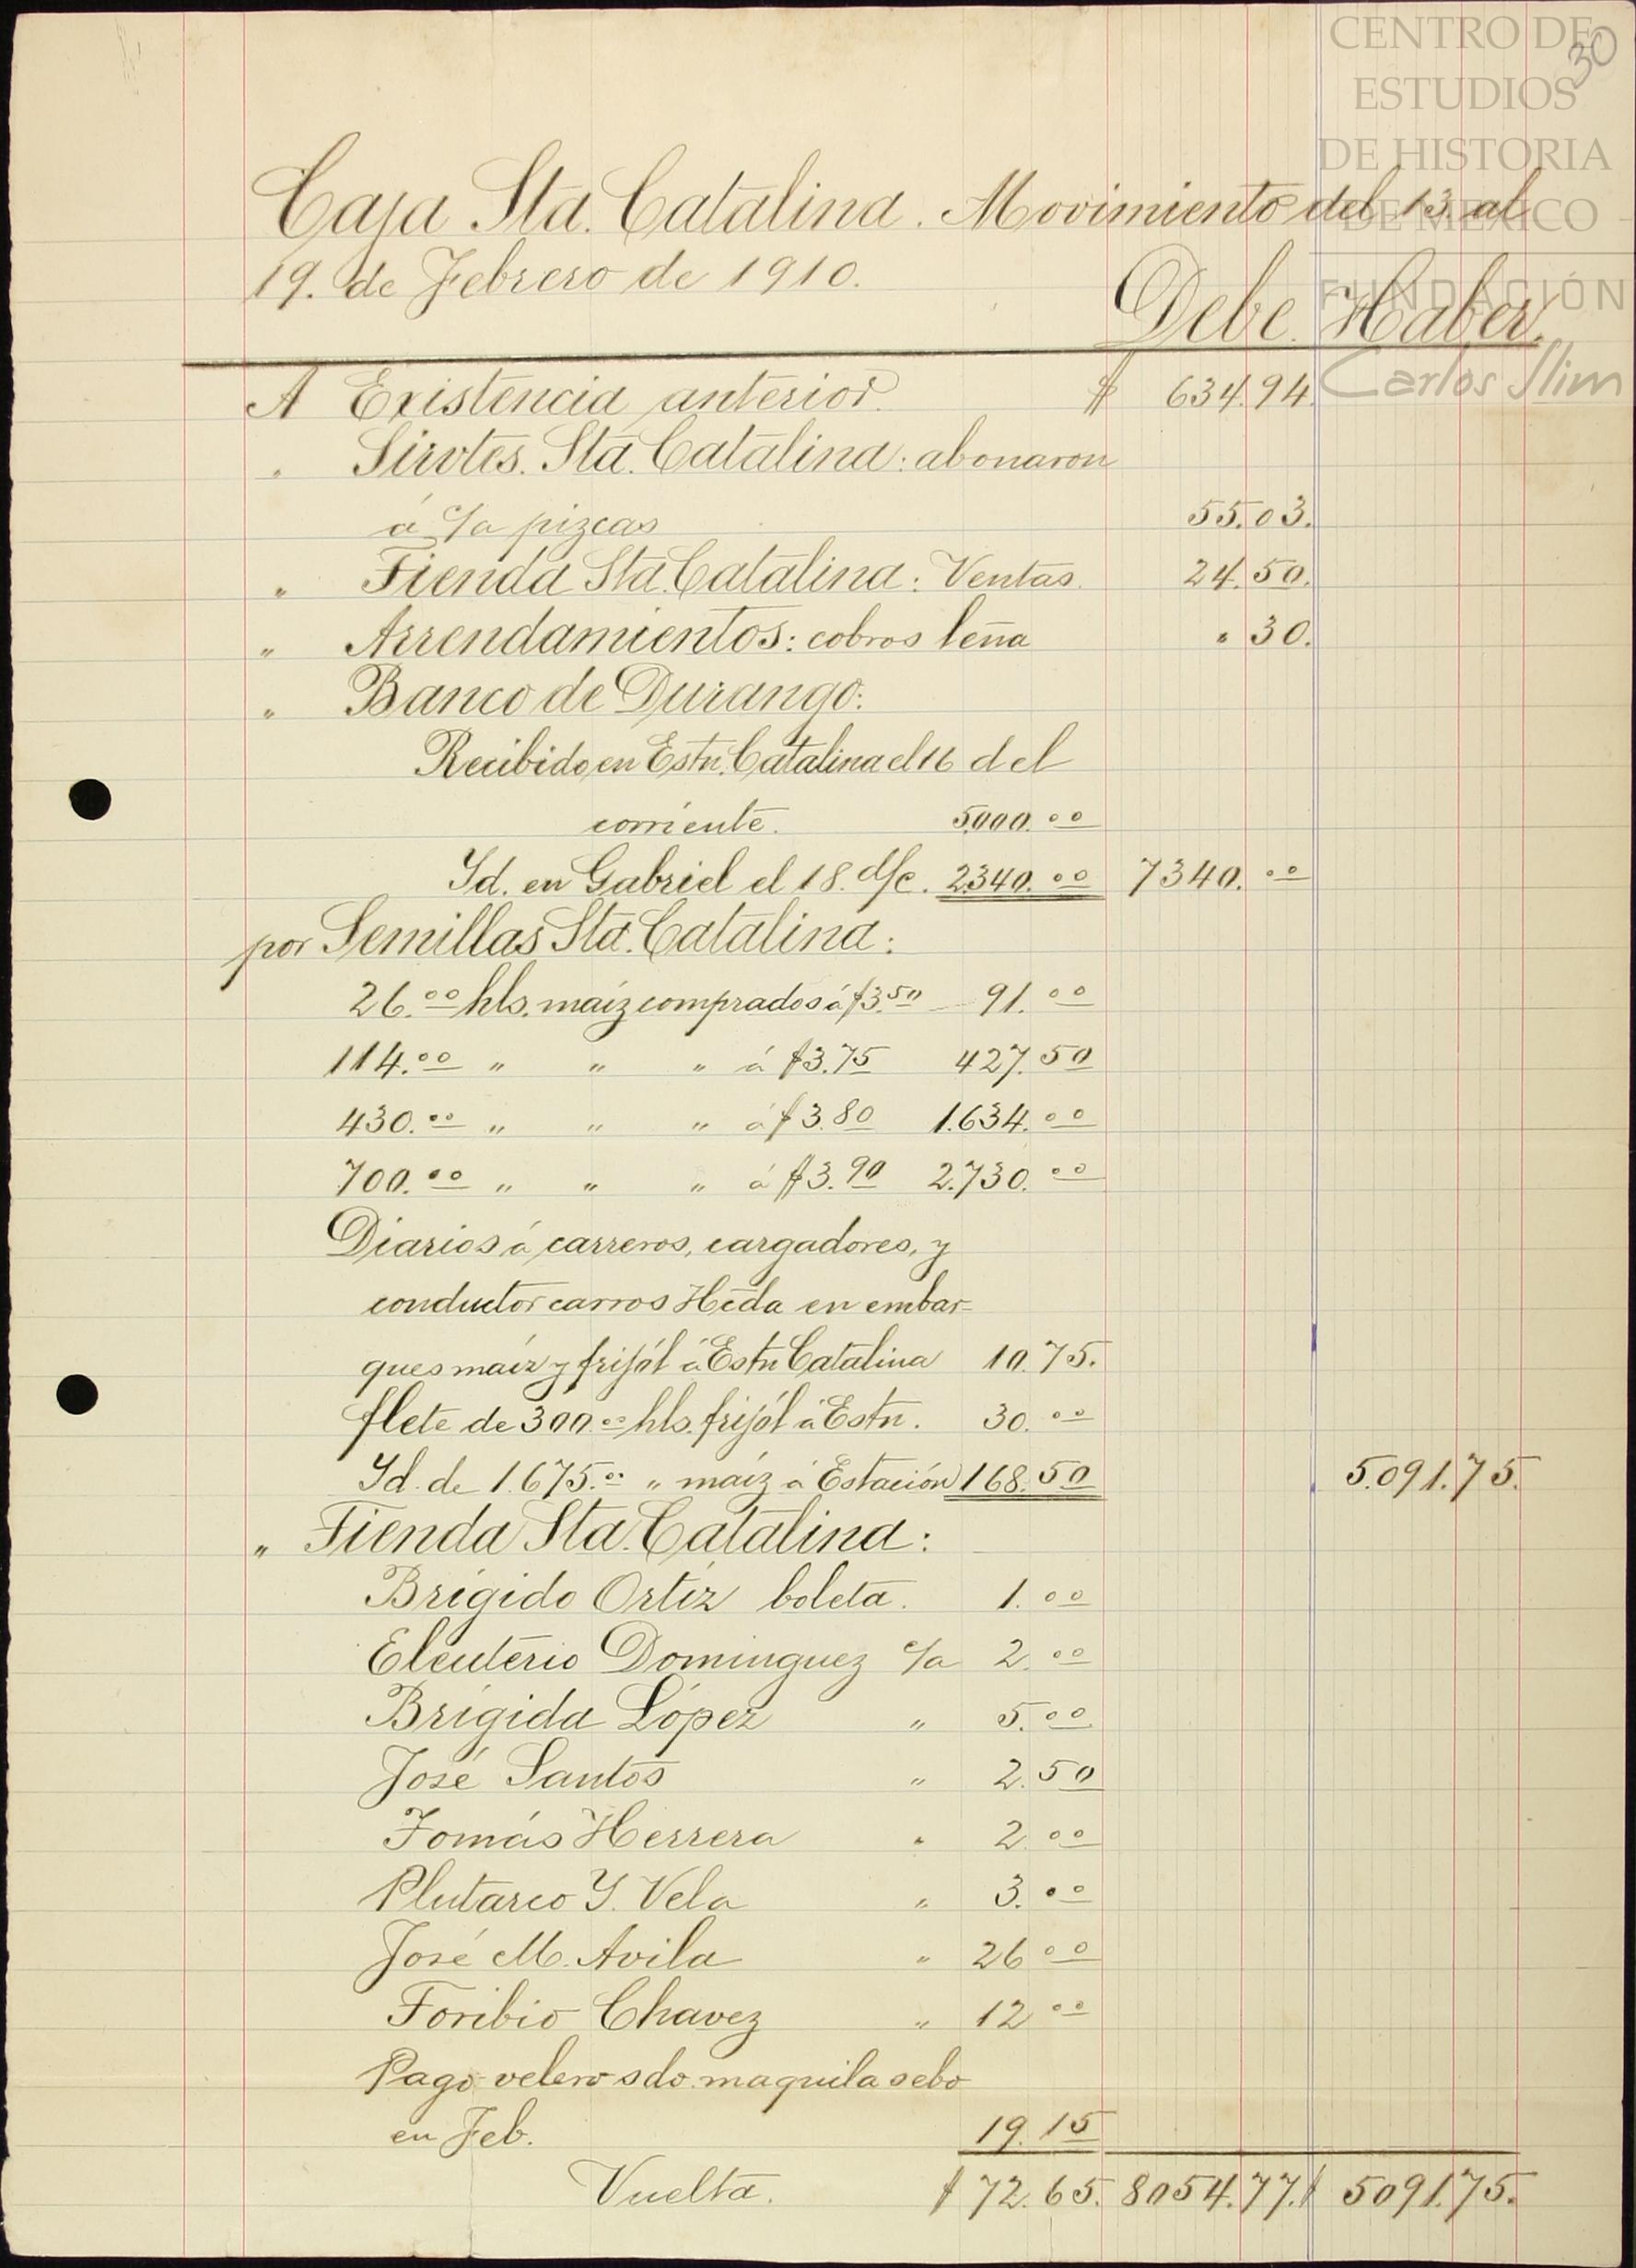 CENTRO DE
ESTUDIOS
DE HISTORIA
DE MEXICO
FUNDACIÓN
Carlos Slim
30
Caja Sta. Catalina. Movimiento del 13. al
19. de Febrero de 1910.
Debe. Haber.
A Existencia anterior. $ 634.94.
" Sirvtes. Sta. Catalina: abonaron
á c/a pizcas 55.03.
" Tienda Sta. Catalina: Ventas. 24.50.
" Arrendamientos: cobros leña " 30.
" Banco de Durango:
Recibido en Estn. Catalina el 16 del
corriente. 5000.00
Id. en Gabriel el 18. d/c. 2340.00 7340.00
por Semillas Sta. Catalina:
26.00 hls. maíz comprados á $3.50 91.00
114.00 " " " á $3.75 427.50
430.00 " " " á $3.80 1.634.00
700.00 " " " á $3.90 2.730.00
Diarios á carreros, cargadores, y
conductor carros Hcda en embar=
ques maíz y frijól á Estn Catalina 10.75.
flete de 300.00 hls. frijól á Estn. 30.00
Id. de 1.675.00 " maíz á Estación 168.50 5.091.75.
" Tienda Sta. Catalina:
Brígido Ortíz boleta. 1.00
Eleuterio Dominguez c/a 2.00
Brígida López " 5.00
José Santos " 2.50
Tomás Herrera " 2.00
Plutarco Y. Vela " 3.00
José M. Avila " 26.00
Toribio Chavez " 12.00
Pago velero sdo. maquila sebo
en Feb. 19.15
Vuelta. $ 72.65. 8054.77. $ 5091.75.